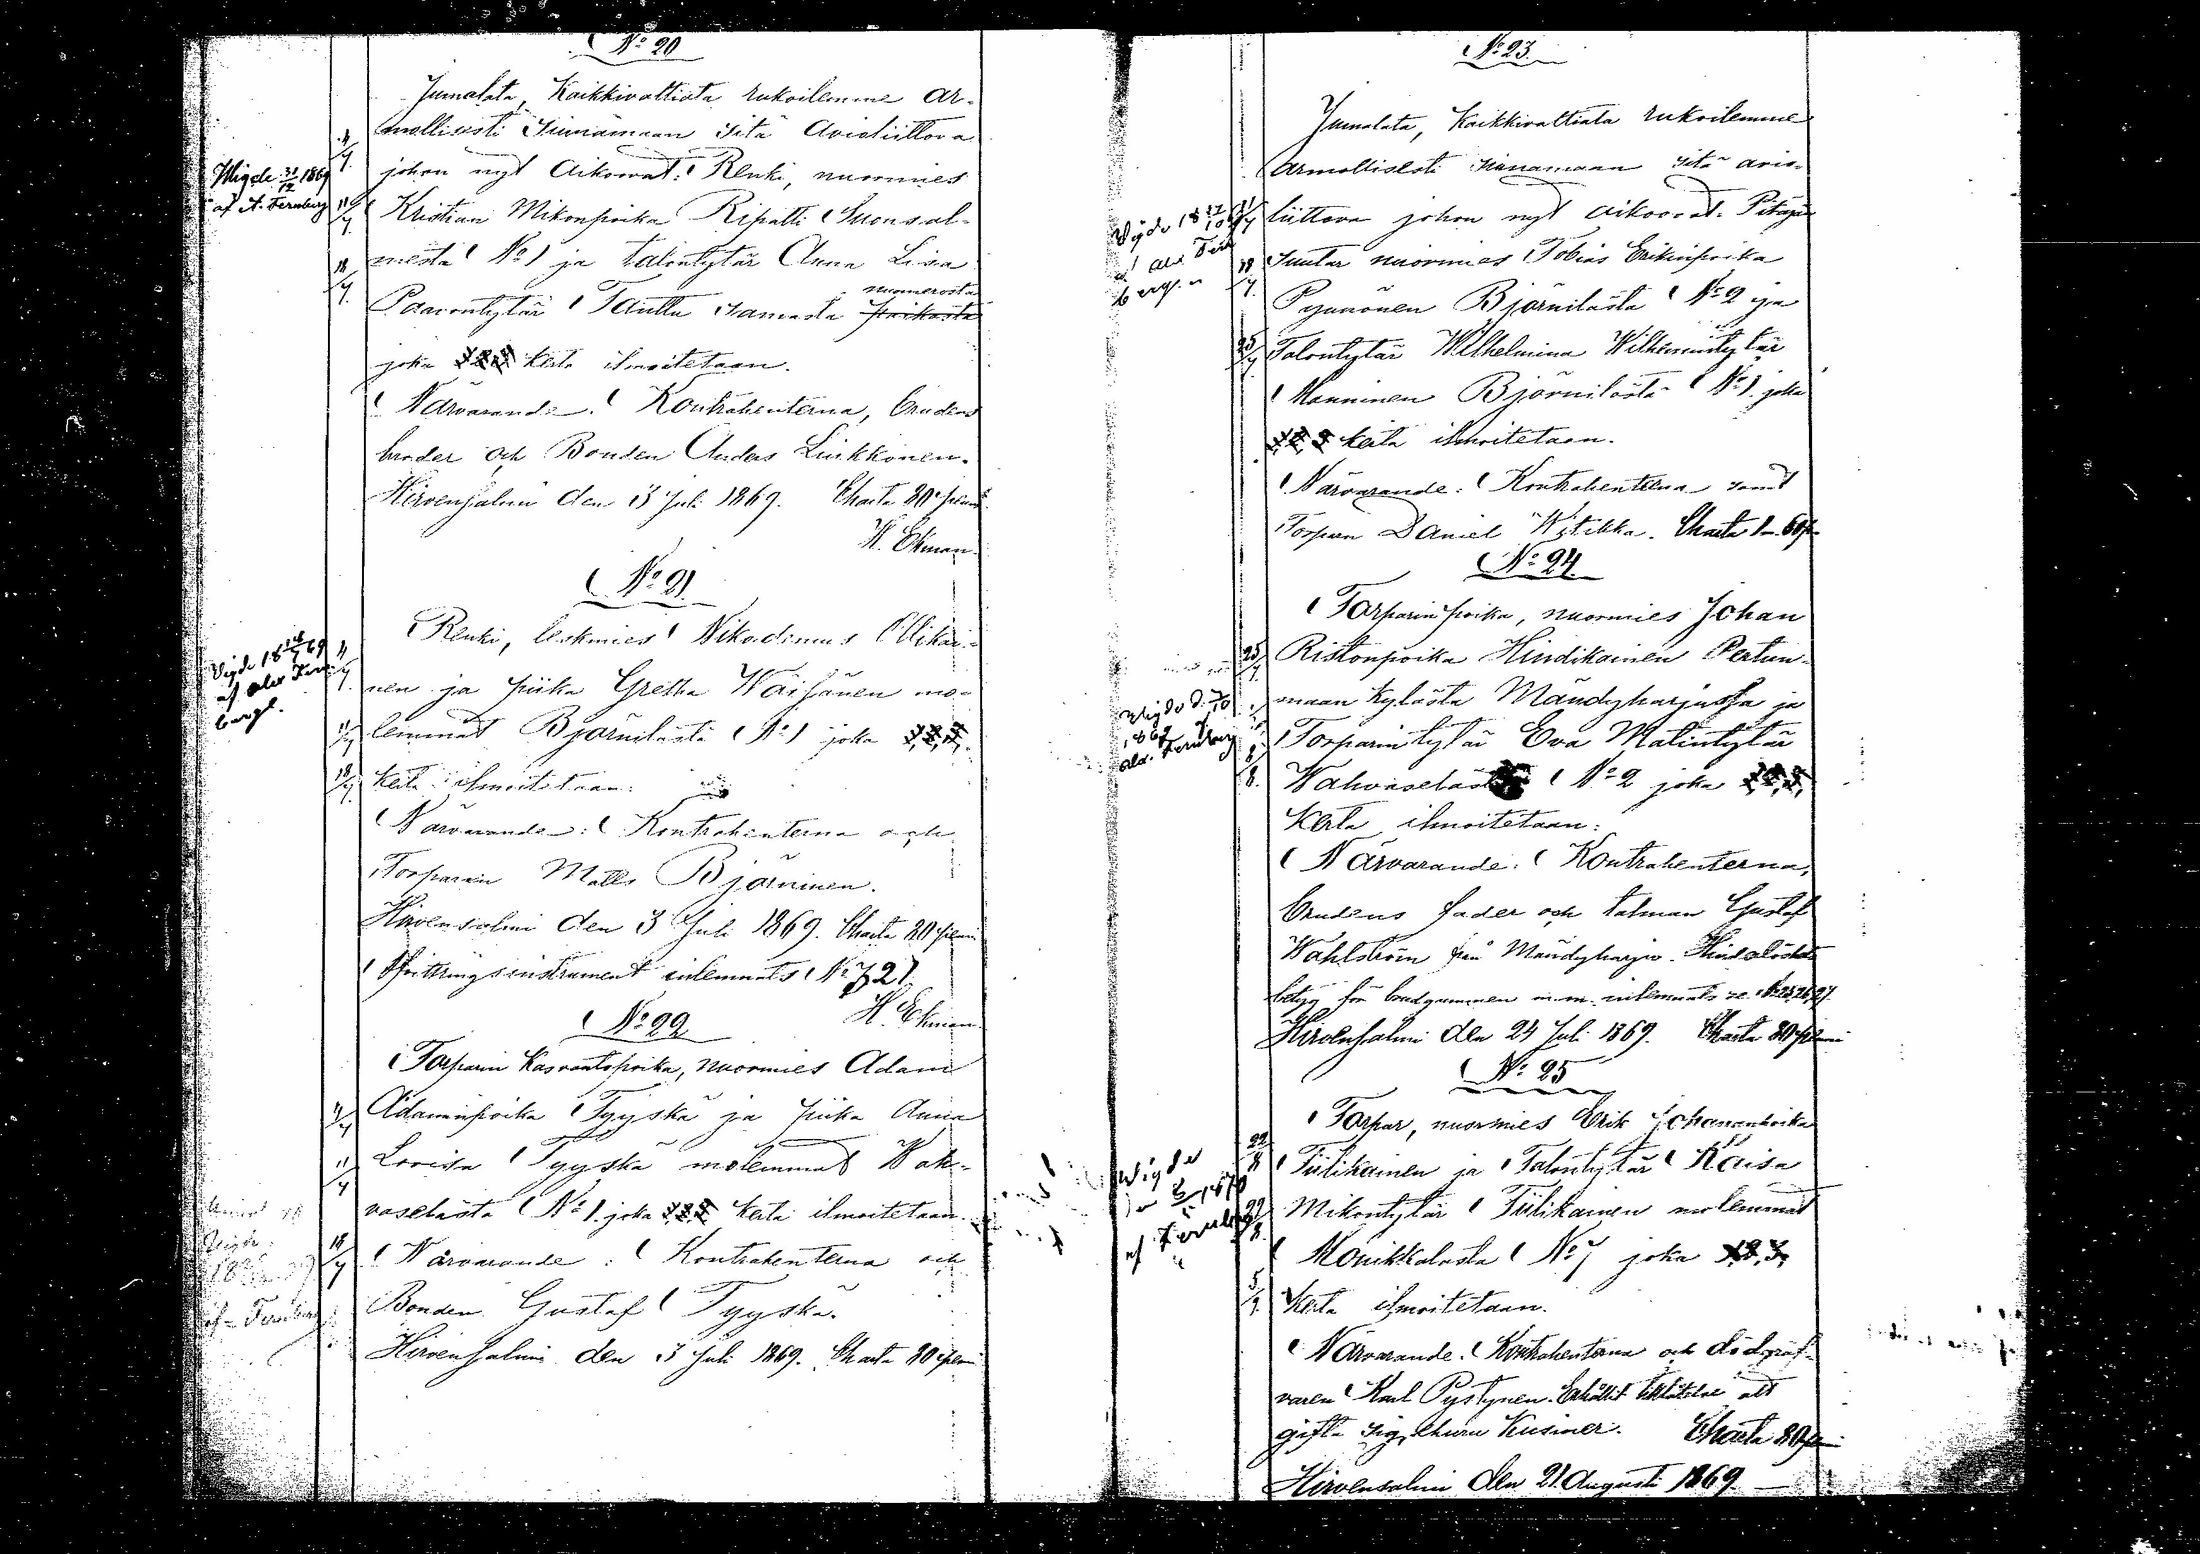 No 20
Jumalata, Kaikkivaltiata rukoilemme ar-
mollisesti siunamaan sitä Avioliittova
johon nyt Aikowat: Renki, nuormies
Kristian Mikonpoika Ripatti Suonsal-
mesta No 1 ja talontytär Anna Lisa
Paavontytär Taulla samasta numerosta
joka 1. 2. 3. kerta ilmoitetaan.
Närvarande: Kontrahenterna, brudens
broder och Bonden Anders Liukkonen.
Hirvensalmi den 3 Juli 1869. Charta 80 penni
H. Ekman
Wigde 31/12 1869
af A. Fernberg
4/7
11/7
18/7
No 21
Renki, leskimies Nikodemus Ollikai-
nen ja piika Gretha Wäisänen mo-
lemmat Bjärnilästä No 1 joka 1. 2. 3.
kerta ilmoitetaan:
Närvarande: Kontrahenterna och
Torparen Matts Bjärninen.
Hirvensalmi den 3 Juli 1869. Charta 80 penni
Skiftringsinstrument inlemnats No 21.
H. Ekman
4/7
11/7
18/7
No 22
Torparin Kasvantopoika, nuormies Adam
Adaminpoika Tyyskä ja piika Anna
Lovisa Tyyskä molemmat Wah-
vaselästä No 1. joka 1. 2. 3. kerta ilmoitetaan.
Närvarande: Kontrahenterna och
Bonden Gustaf Tyyskä.
Hirvensalmi den 3 Juli 1869. Charta 80 penni
4/7
11/7
18/7
No 23.
Jumalata, Kaikkivaltiata rukoilemme
armollisesti siunamaan sitä avio-
liittova johon nyt aikoovat. Pitäjän
Suutar nuormies Tobias Erikinpoika
Pynnönen Bjärnilästä No 2 ja
Talontytär Wilhelmina Wilhelmintytär
Manninen Bjärnilästä No 1. joka
1. 2. 3 kerta ilmoitetaan.
Närvarande: Kontrahenterna samt
Torparn Daniel Witikka. Charta 1 m 60 p
11/7
18/7
25/7
No 24.
Torparinpoika, nuormies Johan
Ristonpoika Hindikainen Pertun-
maan kylästä Mändyharjussa ja
Torparintytär Eva Matintytär
Wahvaselästä No 2 joka 1. 2. 3.
kerta ilmoitetaan:
Närvarande: Kontrahenterna,
brudens fader och talman Gustaf
Wahlström från Mändyharju. Hinderlöshets
betyg för brudgummen m.m. inlemnats se No 25, 26, 27.
Hirvensalmi den 24 Juli 1869. Charta 80 penni
25/7
No 25
Torpar, nuormies Erik Johananpoika
Tiilikainen ja Talontytär Kaisa
Mikontytär Tiilikainen molemmat
Monikkalasta No 7 joka 1. 2. 3.
kerta ilmoitetaan.
Närvarande: Kontrahenterna och dödgräf-
varen Karl Pystynen. Erhållit tillåtelse att
gifta sig, ehuru Kusiner. Charta 80 penni
Hirvensalmi den 21 Augusti 1869.
22/8
29/8
5/9